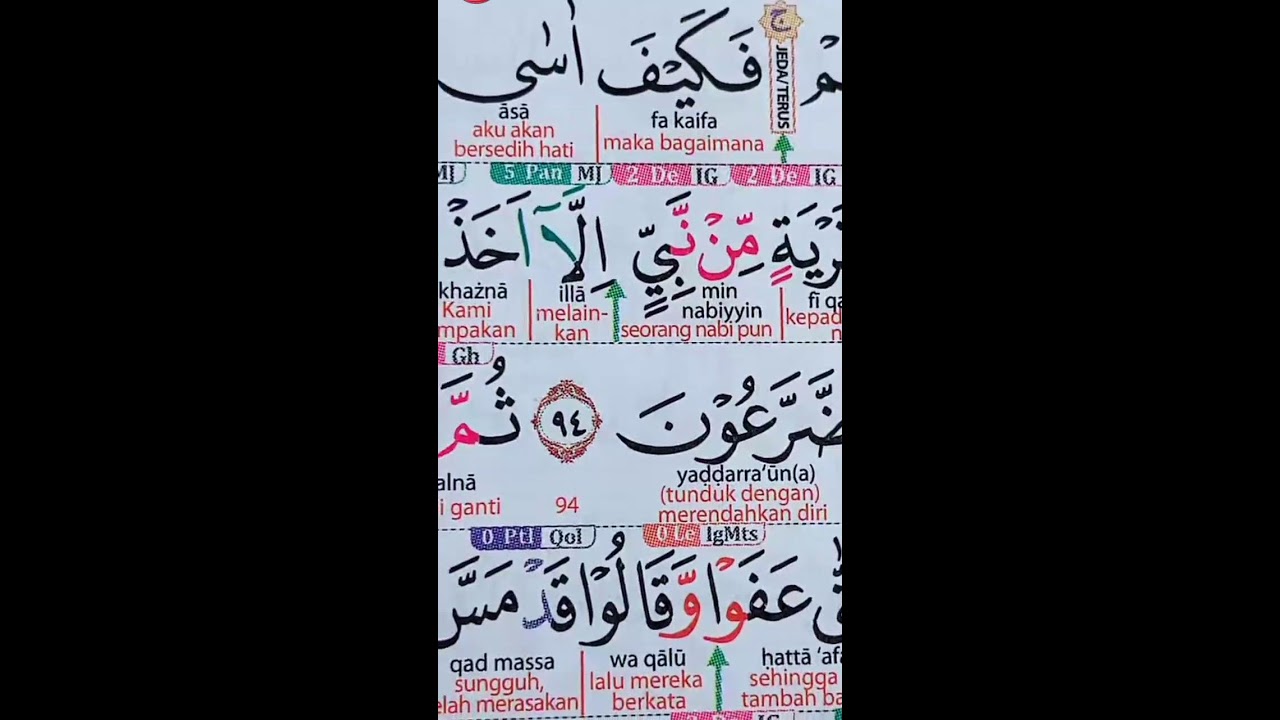 ج
JEDA/TERUS
فَكَيْفَ اٰسٰى
fa kaifa āsā
maka bagaimana aku akan
bersedih hati
IG 2 De IG 2 De MJ 5 Pan MJ
مِّنْ نَّبِيٍّ اِلَّآ اَخَذْ
min illā khażnā
nabiyyin
seorang nabi pun melain- Kami
kan
Gh
ضَّرَّعُوْنَ ٩٤ ثُمَّ
yaḍḍarra‘ūn(a) alnā
(tunduk dengan) 94 i ganti
merendahkan diri
IgMts 0 Le Qol 0 Ptl
عَفَوْا وَّقَالُوْا قَدْ مَسَّ
ḥattā ‘afa wa qālū qad massa
sehingga lalu mereka sungguh,
tambah ba berkata elah merasakan